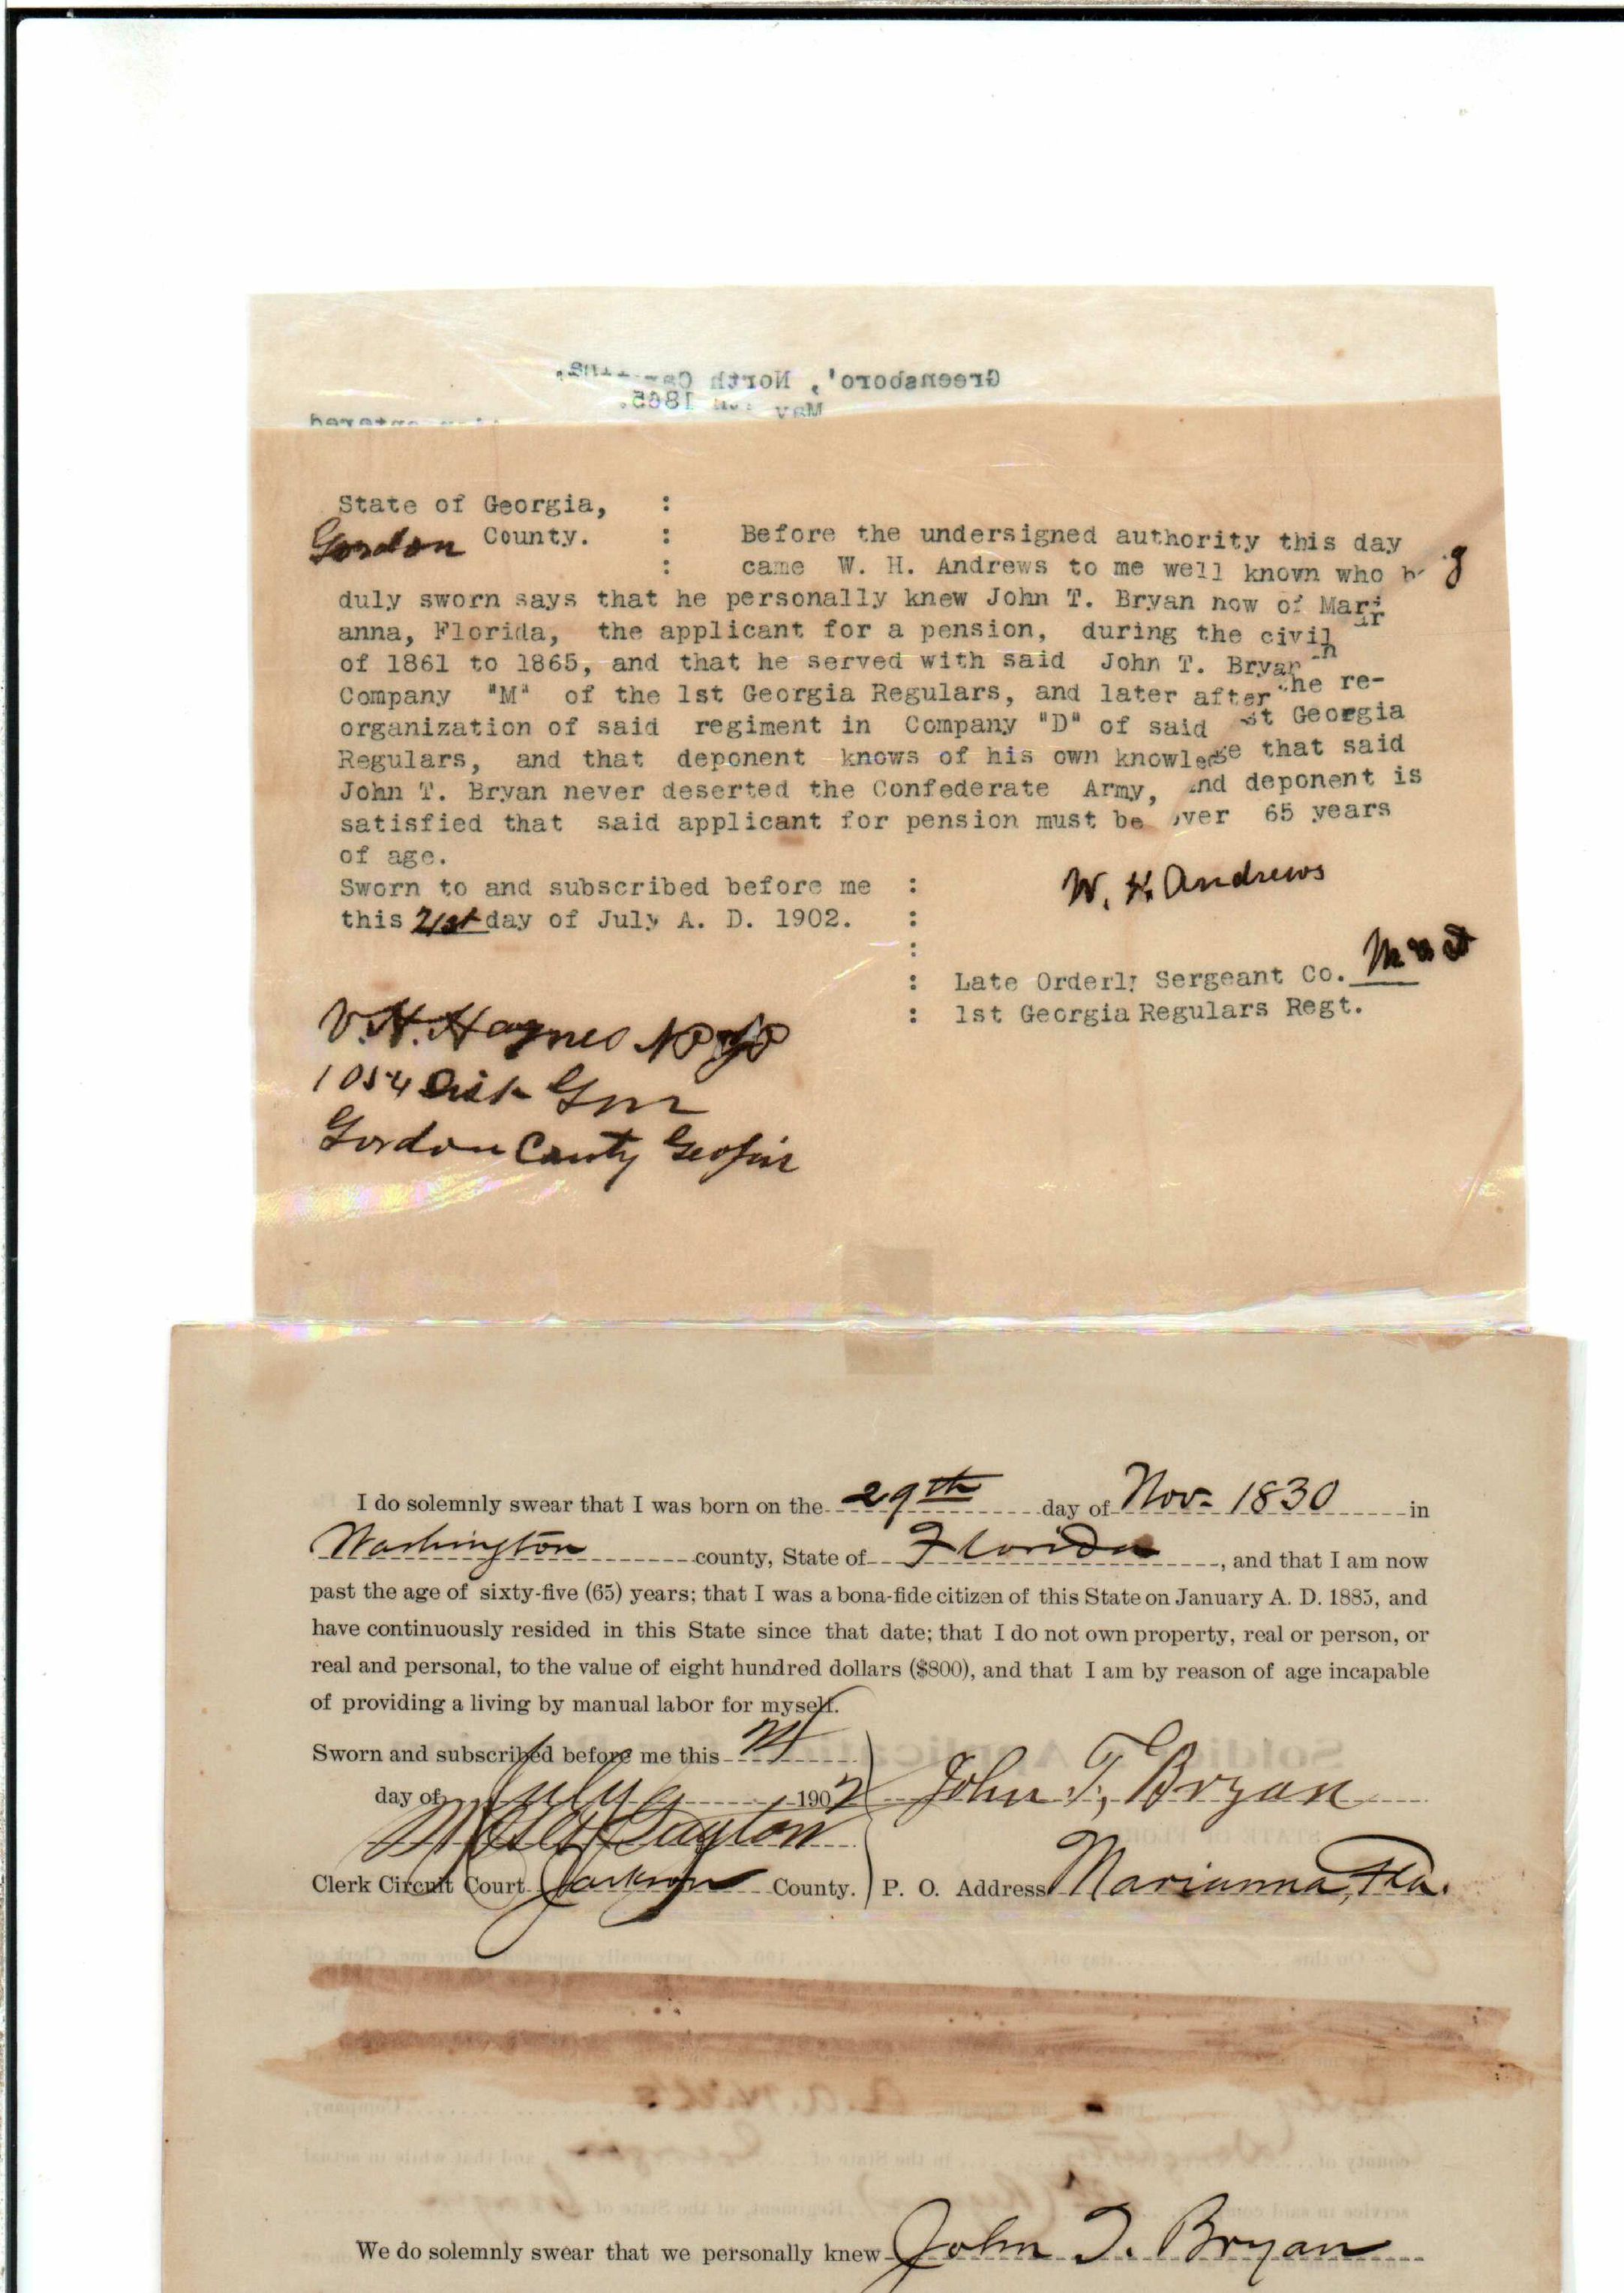 Greensboro', North
May 1865.
entered
State of Georgia, :
Gordon County. : Before the undersigned authority this day
: came W. H. Andrews to me well known who g
duly sworn says that he personally knew John T. Bryan now of Mari
anna, Florida, the applicant for a pension, during the civil ar
of 1861 to 1865, and that he served with said John T. Bryan n
Company "M" of the 1st Georgia Regulars, and later after he re-
organization of said regiment in Company "D" of said st Georgia
Regulars, and that deponent knows of his own knowledge that said
John T. Bryan never deserted the Confederate Army, and deponent is
satisfied that said applicant for pension must be over 65 years
of age.
Sworn to and subscribed before me :
W. H. Andrews
this 21st day of July A. D. 1902. :
:
: Late Orderly Sergeant Co. M
: 1st Georgia Regulars Regt.
V. H. Haynes N P & J P
1054 Dist G m
Gordon County Georgia
I do solemnly swear that I was born on the 29th day of Nov. 1830 in
Washington county, State of Florida, and that I am now
past the age of sixty-five (65) years; that I was a bona-fide citizen of this State on January A. D. 1885, and
have continuously resided in this State since that date; that I do not own property, real or person, or
real and personal, to the value of eight hundred dollars ($800), and that I am by reason of age incapable
of providing a living by manual labor for myself.
Sworn and subscribed before me this
day of July 1902 John T. Bryan
Clerk Circuit Court Jackson County. P. O. Address Marianna, Fla.
We do solemnly swear that we personally knew John T. Bryan